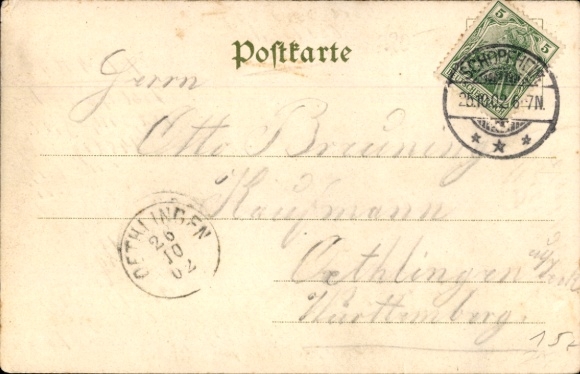 5
5
SCHOPFHEIM
25.10.02.6-7N.
Postkarte
Herrn
Otto Breuning
Kaufmann
OETHLINGEN
26
10
02
Oethlingen
auf
Württemberg
15.